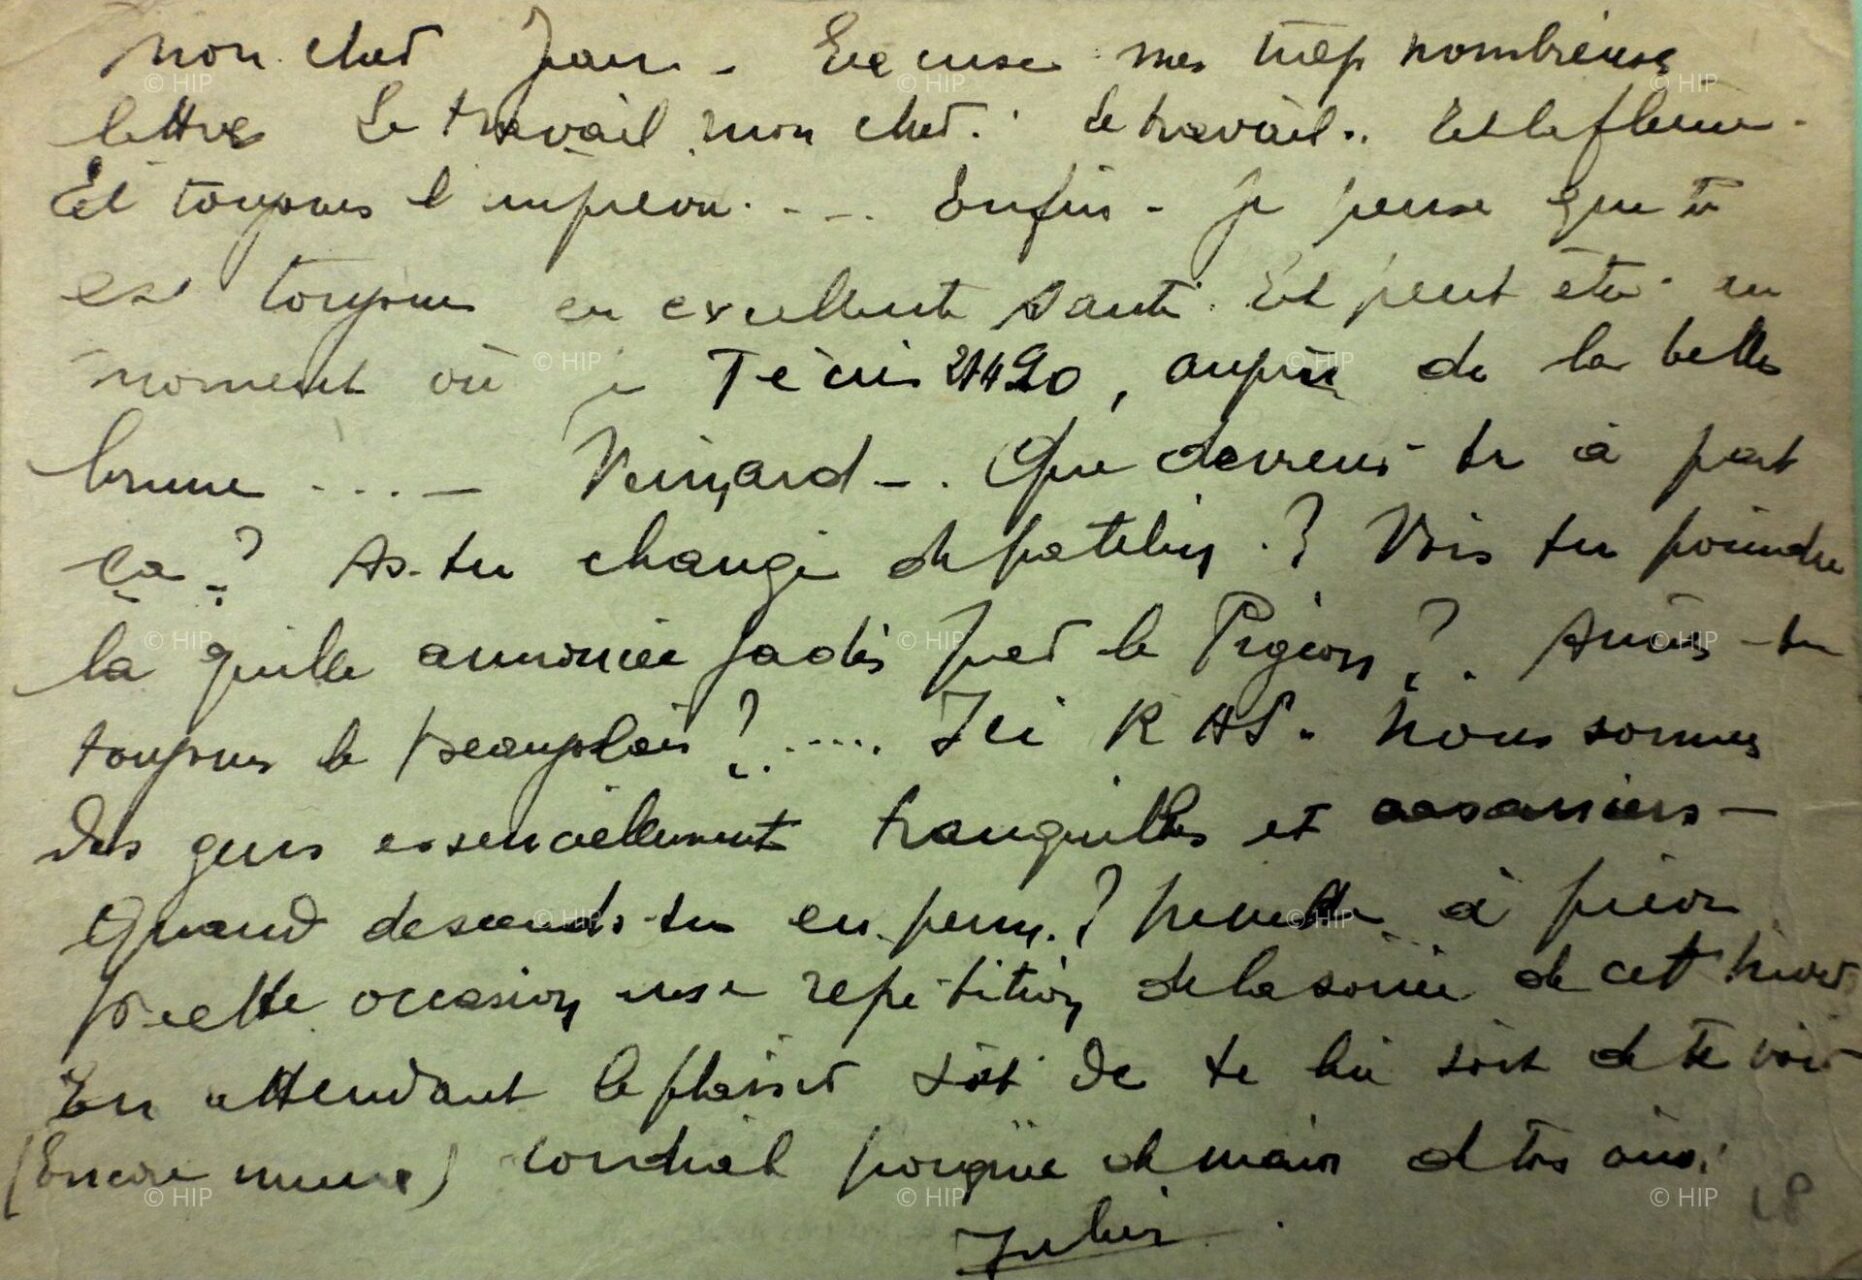 Mon cher Jean - Excuse mes trop nombreuses
lettres Le travail mon cher. Le travail.. Et la flemme -
Et toujours l'imprévu. - - - Enfin - je pense que tu
est toujours en excellente santé. Et peut être au
moment où je T'écris 21h20, auprès de la belle
brune . . . - Veinard - . Que deviens-tu à part
ça ? As-tu changé de patelin . ? Vois tu poindre
la quille annoncée jadis par le Pigeon ? . Auras-tu
toujours le beaujolais ? ..... Ici RAS. Nous sommes
des gens essenciellement tranquilles et casaniers -
Quand descends-tu en perm. ? à prévoir
pr cette occasion une répétition de la soirée de cet hiver
En attendant le plaisir soit de te lire soit de te voir
(Encore mieux) cordiale poignée de main de tes amis.
Julien
© HIP